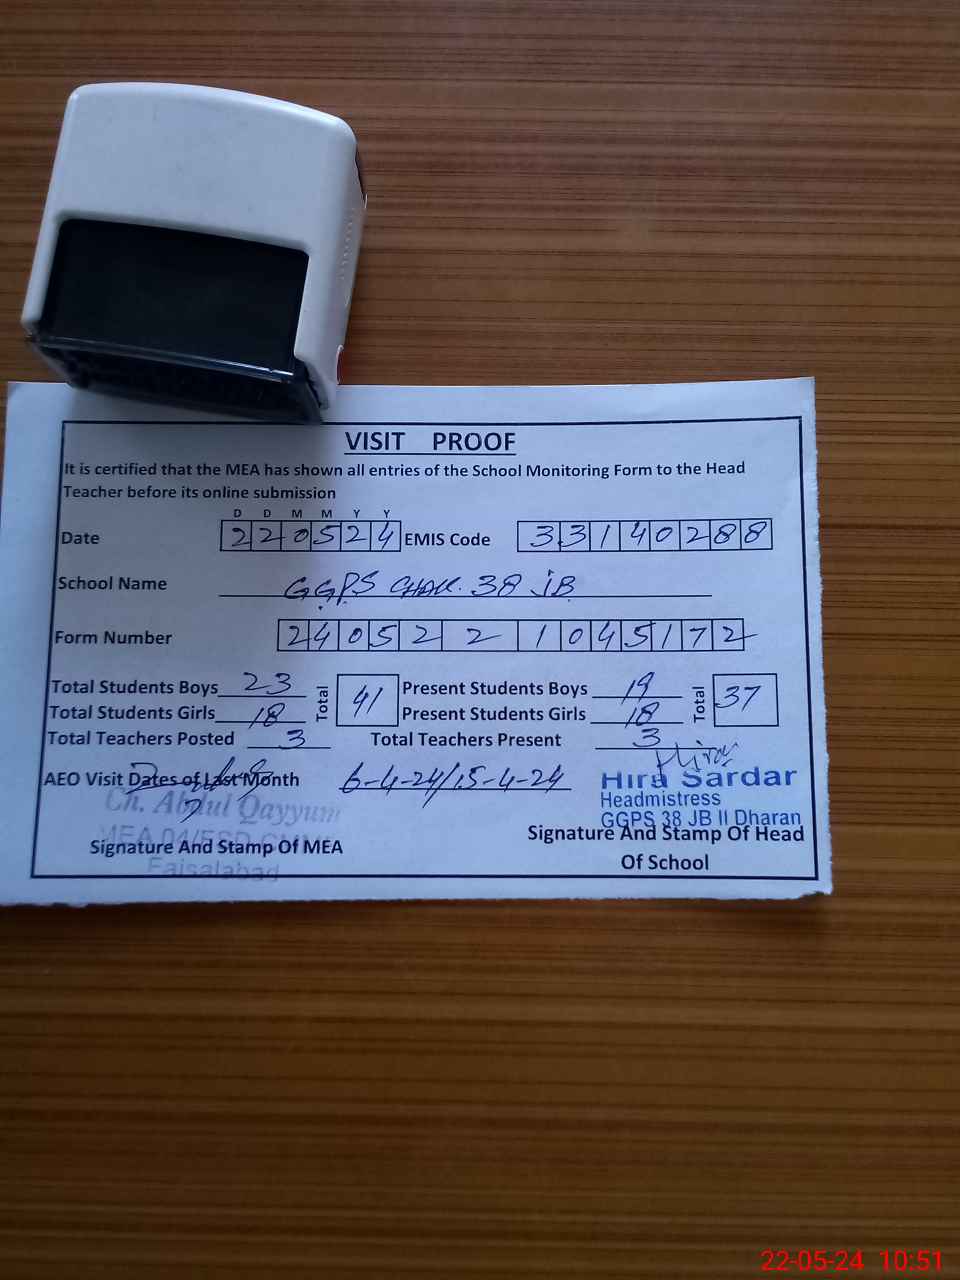 VISIT PROOF
It is certified that the MEA has shown all entries of the School Monitoring Form to the Head
Teacher before its online submission
D D M M Y Y
Date 220524 EMIS Code 33140288
School Name GGPS CHAK. 38 JB
Form Number 2405221045172
Total Students Boys 23 Total 41 Present Students Boys 19 Total 37
Total Students Girls 18 Present Students Girls 18
Total Teachers Posted 3 Total Teachers Present 3
Hira
AEO Visit Dates of Last Month 6-4-24/15-4-24 Hira Sardar
Headmistress
Ch. Abdul Qayyum GGPS 38 JB II Dharan
MEA 04/FSD
Signature And Stamp Of MEA Signature And Stamp Of Head
Of School
Faisalabad
22-05-24 10:51